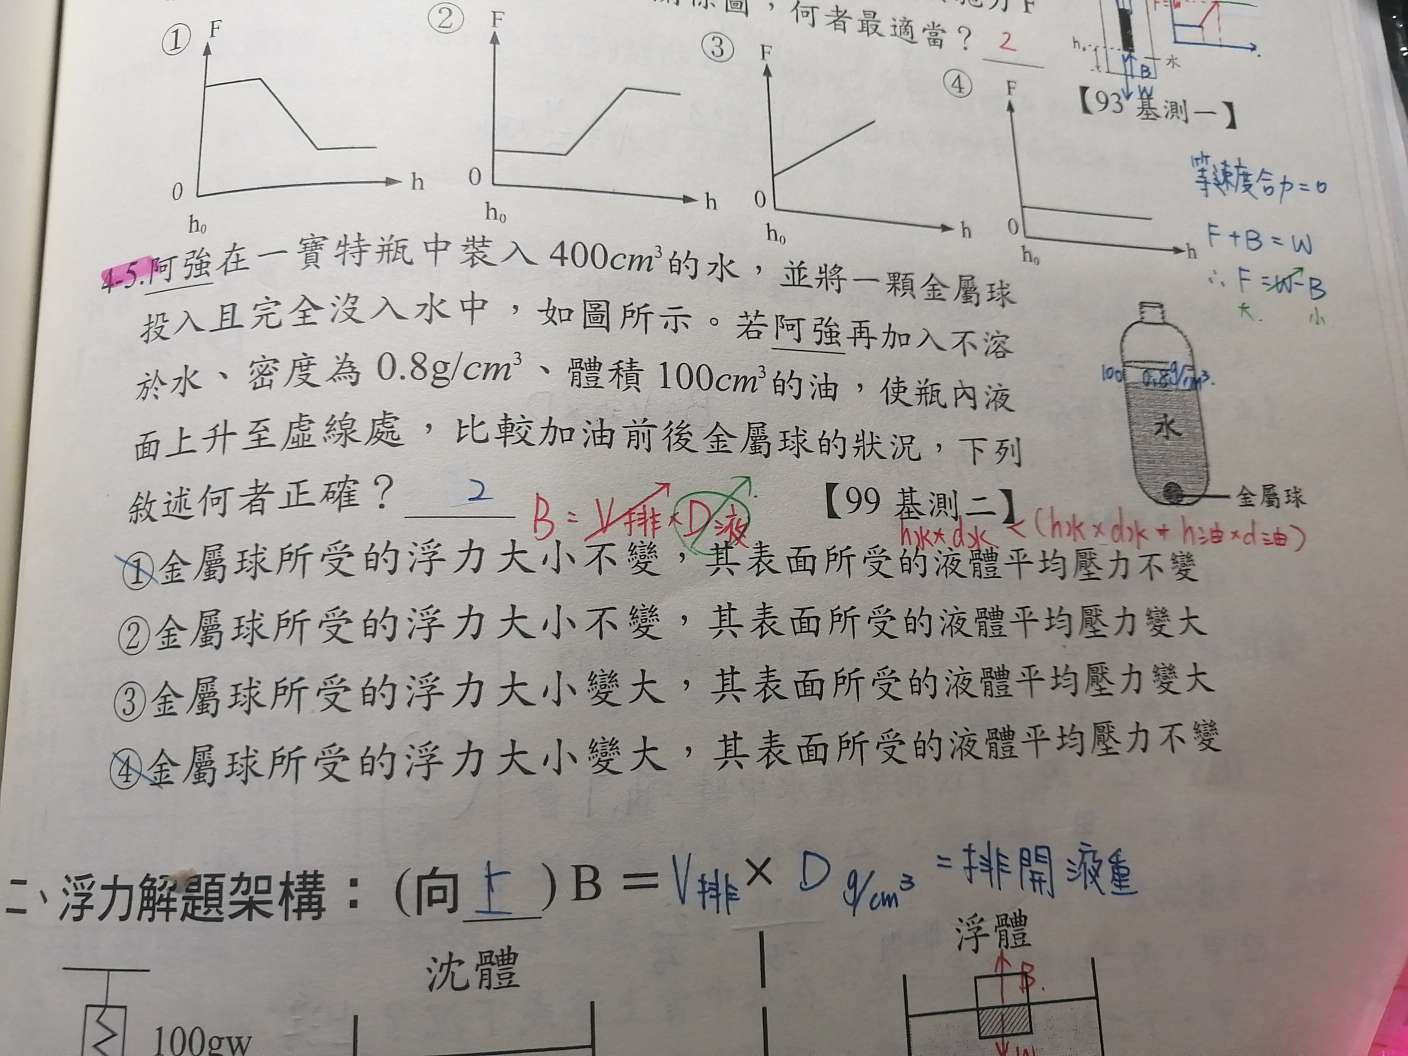 何者最適當？ 2
① F 0 h₀ h
② F 0 h₀ h
③ F 0 h₀ h
④ F 0 h₀ h
h₀ B 水
W
【93 基測一】
等速度合力=0
F+B=W
∴F=W-B
大 小
4-5.阿強在一寶特瓶中裝入 400cm³的水，並將一顆金屬球
投入且完全沒入水中，如圖所示。若阿強再加入不溶
於水、密度為 0.8g/cm³、體積 100cm³的油，使瓶內液
面上升至虛線處，比較加油前後金屬球的狀況，下列
敘述何者正確？ 2 【99 基測二】
100 0.8g/cm³
水
金屬球
B = V排×D液
h水×d水 < (h水×d水+h油×d油)
①金屬球所受的浮力大小不變，其表面所受的液體平均壓力不變
②金屬球所受的浮力大小不變，其表面所受的液體平均壓力變大
③金屬球所受的浮力大小變大，其表面所受的液體平均壓力變大
④金屬球所受的浮力大小變大，其表面所受的液體平均壓力不變
二、浮力解題架構：(向上)B＝V排× D g/cm³ =排開液重
沈體
浮體
B
W
100gw